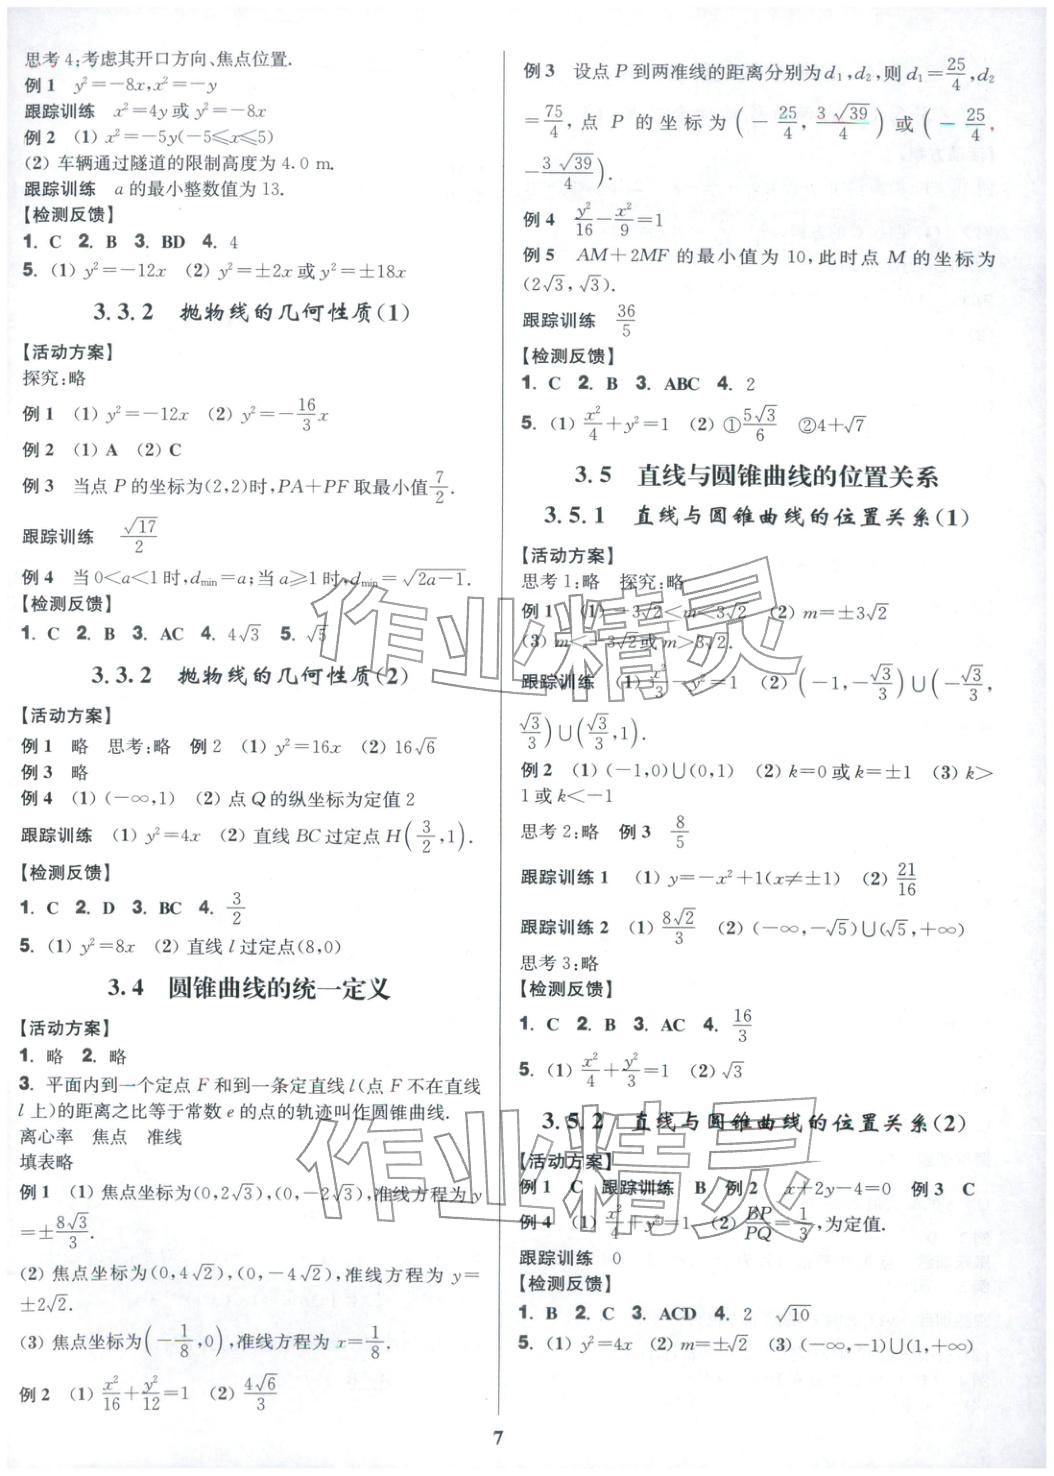 思考4:考虑其开口方向、焦点位置.
例1 y²=−8x,x²=−y
跟踪训练 x²=4y或y²=−8x
例2 (1) x²=−5y(−5≤x≤5)
(2) 车辆通过隧道的限制高度为4.0 m.
跟踪训练 a的最小整数值为13.
【检测反馈】
1. C 2. B 3. BD 4. 4
5. (1) y²=−12x (2) y²=±2x或y²=±18x
3.3.2 抛物线的几何性质(1)
【活动方案】
探究:略
例1 (1) y²=−12x (2) y²=−16/3 x
例2 (1) A (2) C
例3 当点P的坐标为(2,2)时,PA+PF取最小值7/2.
跟踪训练 √17/2
例4 当0<a<1时,dmin=a;当a≥1时,dmin=√(2a−1).
【检测反馈】
1. C 2. B 3. AC 4. 4√3 5. √5
3.3.2 抛物线的几何性质(2)
【活动方案】
例1 略 思考:略 例2 (1) y²=16x (2) 16√6
例3 略
例4 (1) (−∞,1) (2) 点Q的纵坐标为定值2
跟踪训练 (1) y²=4x (2) 直线BC过定点H(3/2,1).
【检测反馈】
1. C 2. D 3. BC 4. 3/2
5. (1) y²=8x (2) 直线l过定点(8,0)
3.4 圆锥曲线的统一定义
【活动方案】
1. 略 2. 略
3. 平面内到一个定点F和到一条定直线l(点F不在直线
l上)的距离之比等于常数e的点的轨迹叫作圆锥曲线.
离心率 焦点 准线
填表略
例1 (1) 焦点坐标为(0,2√3),(0,−2√3),准线方程为y
=±8√3/3.
(2) 焦点坐标为(0,4√2),(0,−4√2),准线方程为y=
±2√2.
(3) 焦点坐标为(−1/8,0),准线方程为x=1/8.
例2 (1) x²/16+y²/12=1 (2) 4√6/3
例3 设点P到两准线的距离分别为d₁,d₂,则d₁=25/4,d₂
=75/4,点P的坐标为(−25/4,3√39/4)或(−25/4,
−3√39/4).
例4 y²/16−x²/9=1
例5 AM+2MF的最小值为10,此时点M的坐标为
(2√3,√3).
跟踪训练 36/5
【检测反馈】
1. C 2. B 3. ABC 4. 2
5. (1) x²/4+y²=1 (2) ①5√3/6 ②4+√7
3.5 直线与圆锥曲线的位置关系
3.5.1 直线与圆锥曲线的位置关系(1)
【活动方案】
思考1:略 探究:略
例1 (1) −3√2<m<3√2 (2) m=±3√2
(3) m<−3√2或m>3√2.
跟踪训练 (1) x²/3−y²=1 (2) (−1,−√3/3)∪(−√3/3,
√3/3)∪(√3/3,1).
例2 (1) (−1,0)∪(0,1) (2) k=0或k=±1 (3) k>
1或k<−1
思考2:略 例3 8/5
跟踪训练1 (1) y=−x²+1(x≠±1) (2) 21/16
跟踪训练2 (1) 8√2/3 (2) (−∞,−√5)∪(√5,+∞)
思考3:略
【检测反馈】
1. C 2. B 3. AC 4. 16/3
5. (1) x²/4+y²/3=1 (2) √3
3.5.2 直线与圆锥曲线的位置关系(2)
【活动方案】
例1 C 跟踪训练 B 例2 x+2y−4=0 例3 C
例4 (1) x²/4+y²=1 (2) BP/PQ=1/3,为定值.
跟踪训练 0
【检测反馈】
1. B 2. C 3. ACD 4. 2 √10
5. (1) y²=4x (2) m=±√2 (3) (−∞,−1)∪(1,+∞)
7
作业精灵
作业精灵